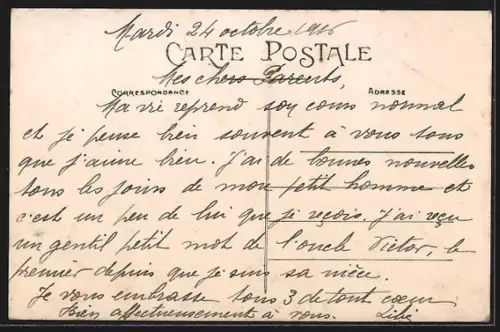 Mardi 24 octobre 1916
CARTE POSTALE
Mes chers Parents,
CORRESPONDANCE ADRESSE
Ma vie reprend son cours normal
et je pense bien souvent à vous tous
que j'aime bien. J'ai de bonnes nouvelles
tous les jours de mon petit homme et
c'est un peu de lui que je reçois. J'ai reçu
un gentil petit mot de l'oncle Victor, le
premier depuis que je suis sa nièce.
Je vous embrasse tous 3 de tout cœur
Bien affectueusement à vous. Lili